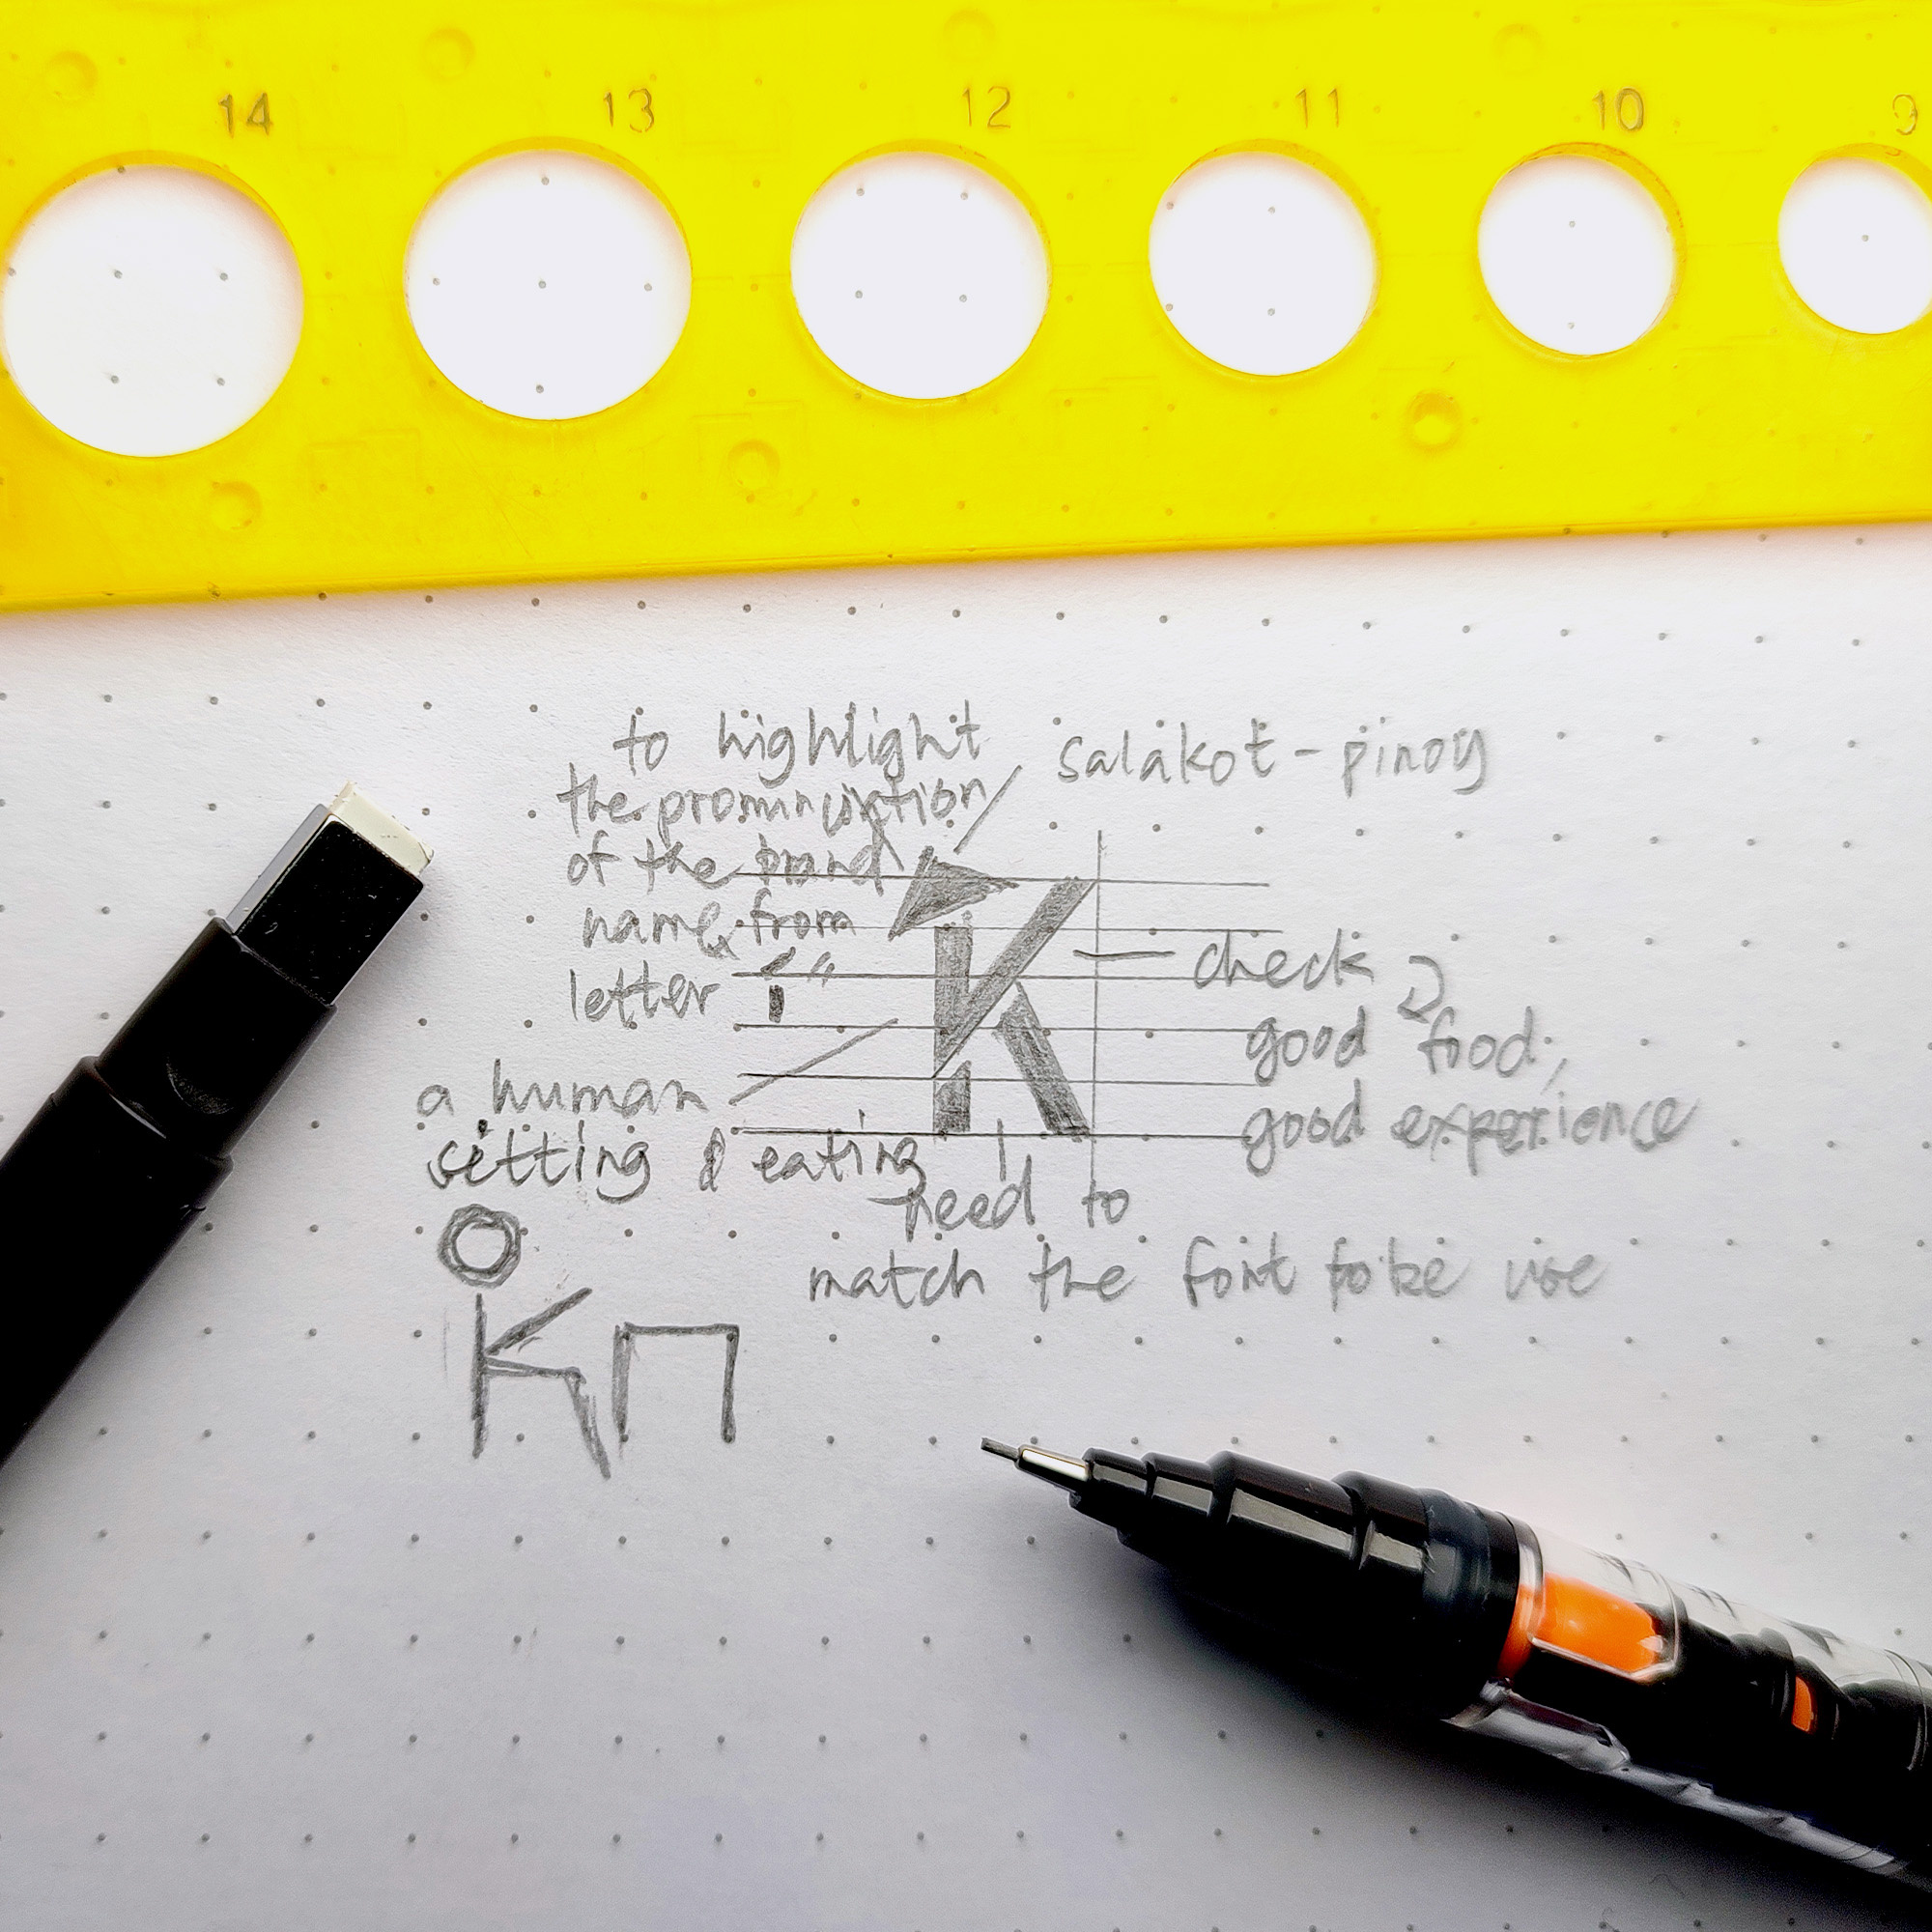 14 13 12 11 10 9
to highlight
the pronunciation
of the brand
name, from
letter "i"
salakot - pinoy
K
check
good food,
good experience
a human
sitting & eating
need to
match the font to be use
K